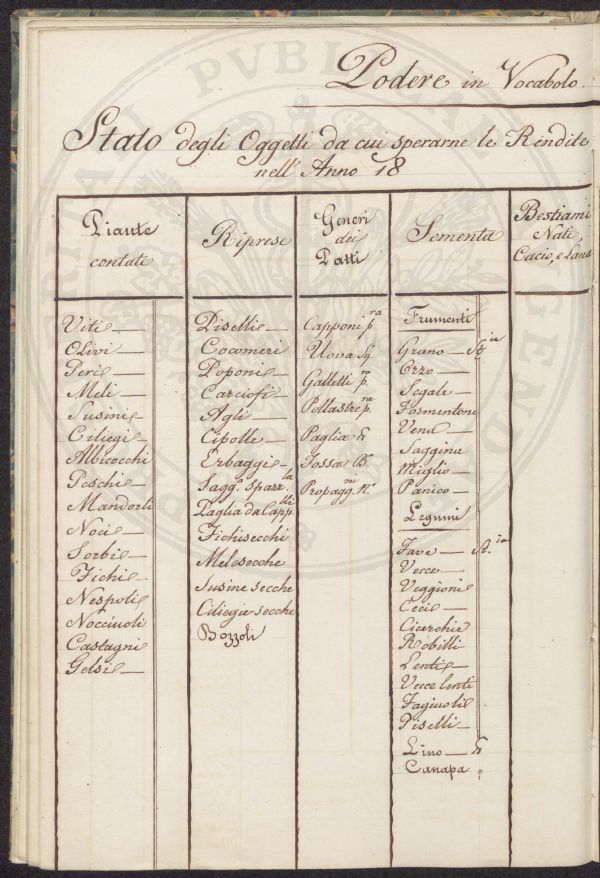 Podere in Vocabolo
Stato degli Oggetti da cui sperarne le Rendite
nell' Anno 18
Piante
contate
Viti
Olivi
Peri
Meli
Susini
Ciliegi
Albicocchi
Peschi
Mandorli
Noci
Sorbi
Fichi
Nespoli
Nocciuoli
Castagni
Gelsi
Riprese
Piselli
Cocomeri
Poponi
Carciofi
Agli
Cipolle
Erbaggi
Sagg.ª Spazz.la
Paglia da Capp.lli
Fichi secchi
Mele secche
Susine secche
Ciliegie secche
Bozzoli
Generi
dei
Patti
Capponi p.ra
Uova
Galletti p.
Pollastre p.ra
Paglia
Fossa B.
Propagg.ni N.º
Sementa
Frumenti
Grano
Orzo
Segale
Formentone
Vena
Saggina
Miglio
Panico
Legumi
Fave
Vecce
Veggioni
Ceci
Cicerchie
Robilli
Lenti
Vecce lenti
Fagiuoli
Piselli
Lino
Canapa "
Bestiami
Nati,
Cacio, e Lana